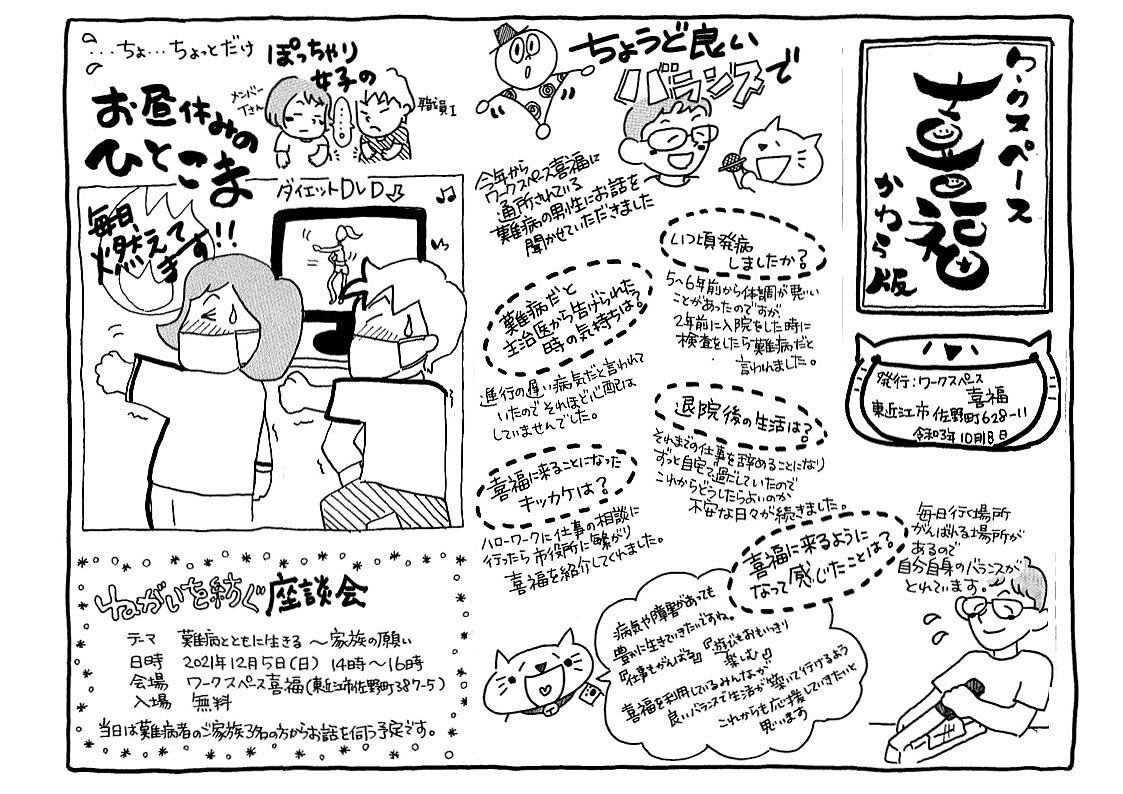 ワークスペース
喜福
かわら版
発行:ワークスペース
喜福
東近江市佐野町628-11
令和3年10月18日
ちょうど良い
バランスで
今年から
ワークスペース喜福に
通所されている
難病の男性にお話を
聞かせていただきました
いつ頃発病
しましたか?
5~6年前から体調が悪い
ことがあったのですが
2年前に入院をした時に
検査をしたら難病だと
言われました。
難病だと
主治医から告げられた
時の気持ちは?
進行の遅い病気だと言われて
いたのでそれほど心配は
していませんでした。
退院後の生活は?
それまでの仕事を辞めることになり
ずっと自宅で過ごしていたので
これからどうしたらよいのか
不安な日々が続きました。
喜福に来ることになった
キッカケは?
ハローワークに仕事の相談に
行ったら市役所に繋がり
喜福を紹介してくれました。
喜福に来るように
なって感じたことは?
毎日行く場所
がんばれる場所が
あるので
自分自身のバランスが
とれています。
病気や障害があっても
豊かに生きていきたいですね。
『仕事もがんばる』『遊びもおもいっきり
楽しむ』
喜福を利用しているみんなが
良いバランスで生活が築いて行けるよう
これからも応援していきたいと
思います
…ちょ…ちょっとだけ
ぽっちゃり
女子の
お昼休みの
ひとこま
メンバー
Tさん
職員I
ダイエットDVD
毎日、
燃えて
ます!!
ねがいを紡ぐ座談会
テーマ 難病とともに生きる ~家族の願い
日時 2021年12月5日(日) 14時~16時
会場 ワークスペース喜福(東近江市佐野町387-5)
入場 無料
当日は難病者のご家族3名の方からお話を伺う予定です。